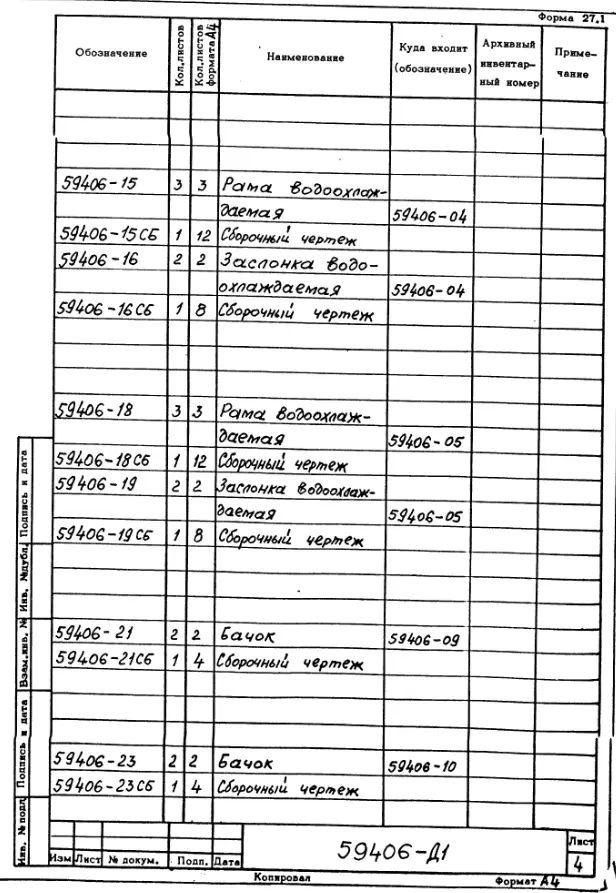 Форма 27.1
Обозначение Кол.листов Кол.листов формата А4 Наименование Куда входит (обозначение) Архивный инвентар- ный номер Приме- чание
59406-15 3 3 Рама водоохлаж-
даемая 59406-04
59406-15СБ 1 12 Сборочный чертеж
59406-16 2 2 Заслонка водо-
охлаждаемая 59406-04
59406-16СБ 1 8 Сборочный чертеж
59406-18 3 3 Рама водоохлаж-
даемая 59406-05
59406-18СБ 1 12 Сборочный чертеж
59406-19 2 2 Заслонка водоохлаж-
даемая 59406-05
59406-19СБ 1 8 Сборочный чертеж
59406-21 2 2 Бачок 59406-09
59406-21СБ 1 4 Сборочный чертеж
59406-23 2 2 Бачок 59406-10
59406-23СБ 1 4 Сборочный чертеж
Подпись и дата
Инв. №дубл.
Взам.инв. №
Подпись и дата
Инв. №подл
59406-Д1
Лист
4
Изм Лист № докум. Подп. Дата
Копировал Формат А4